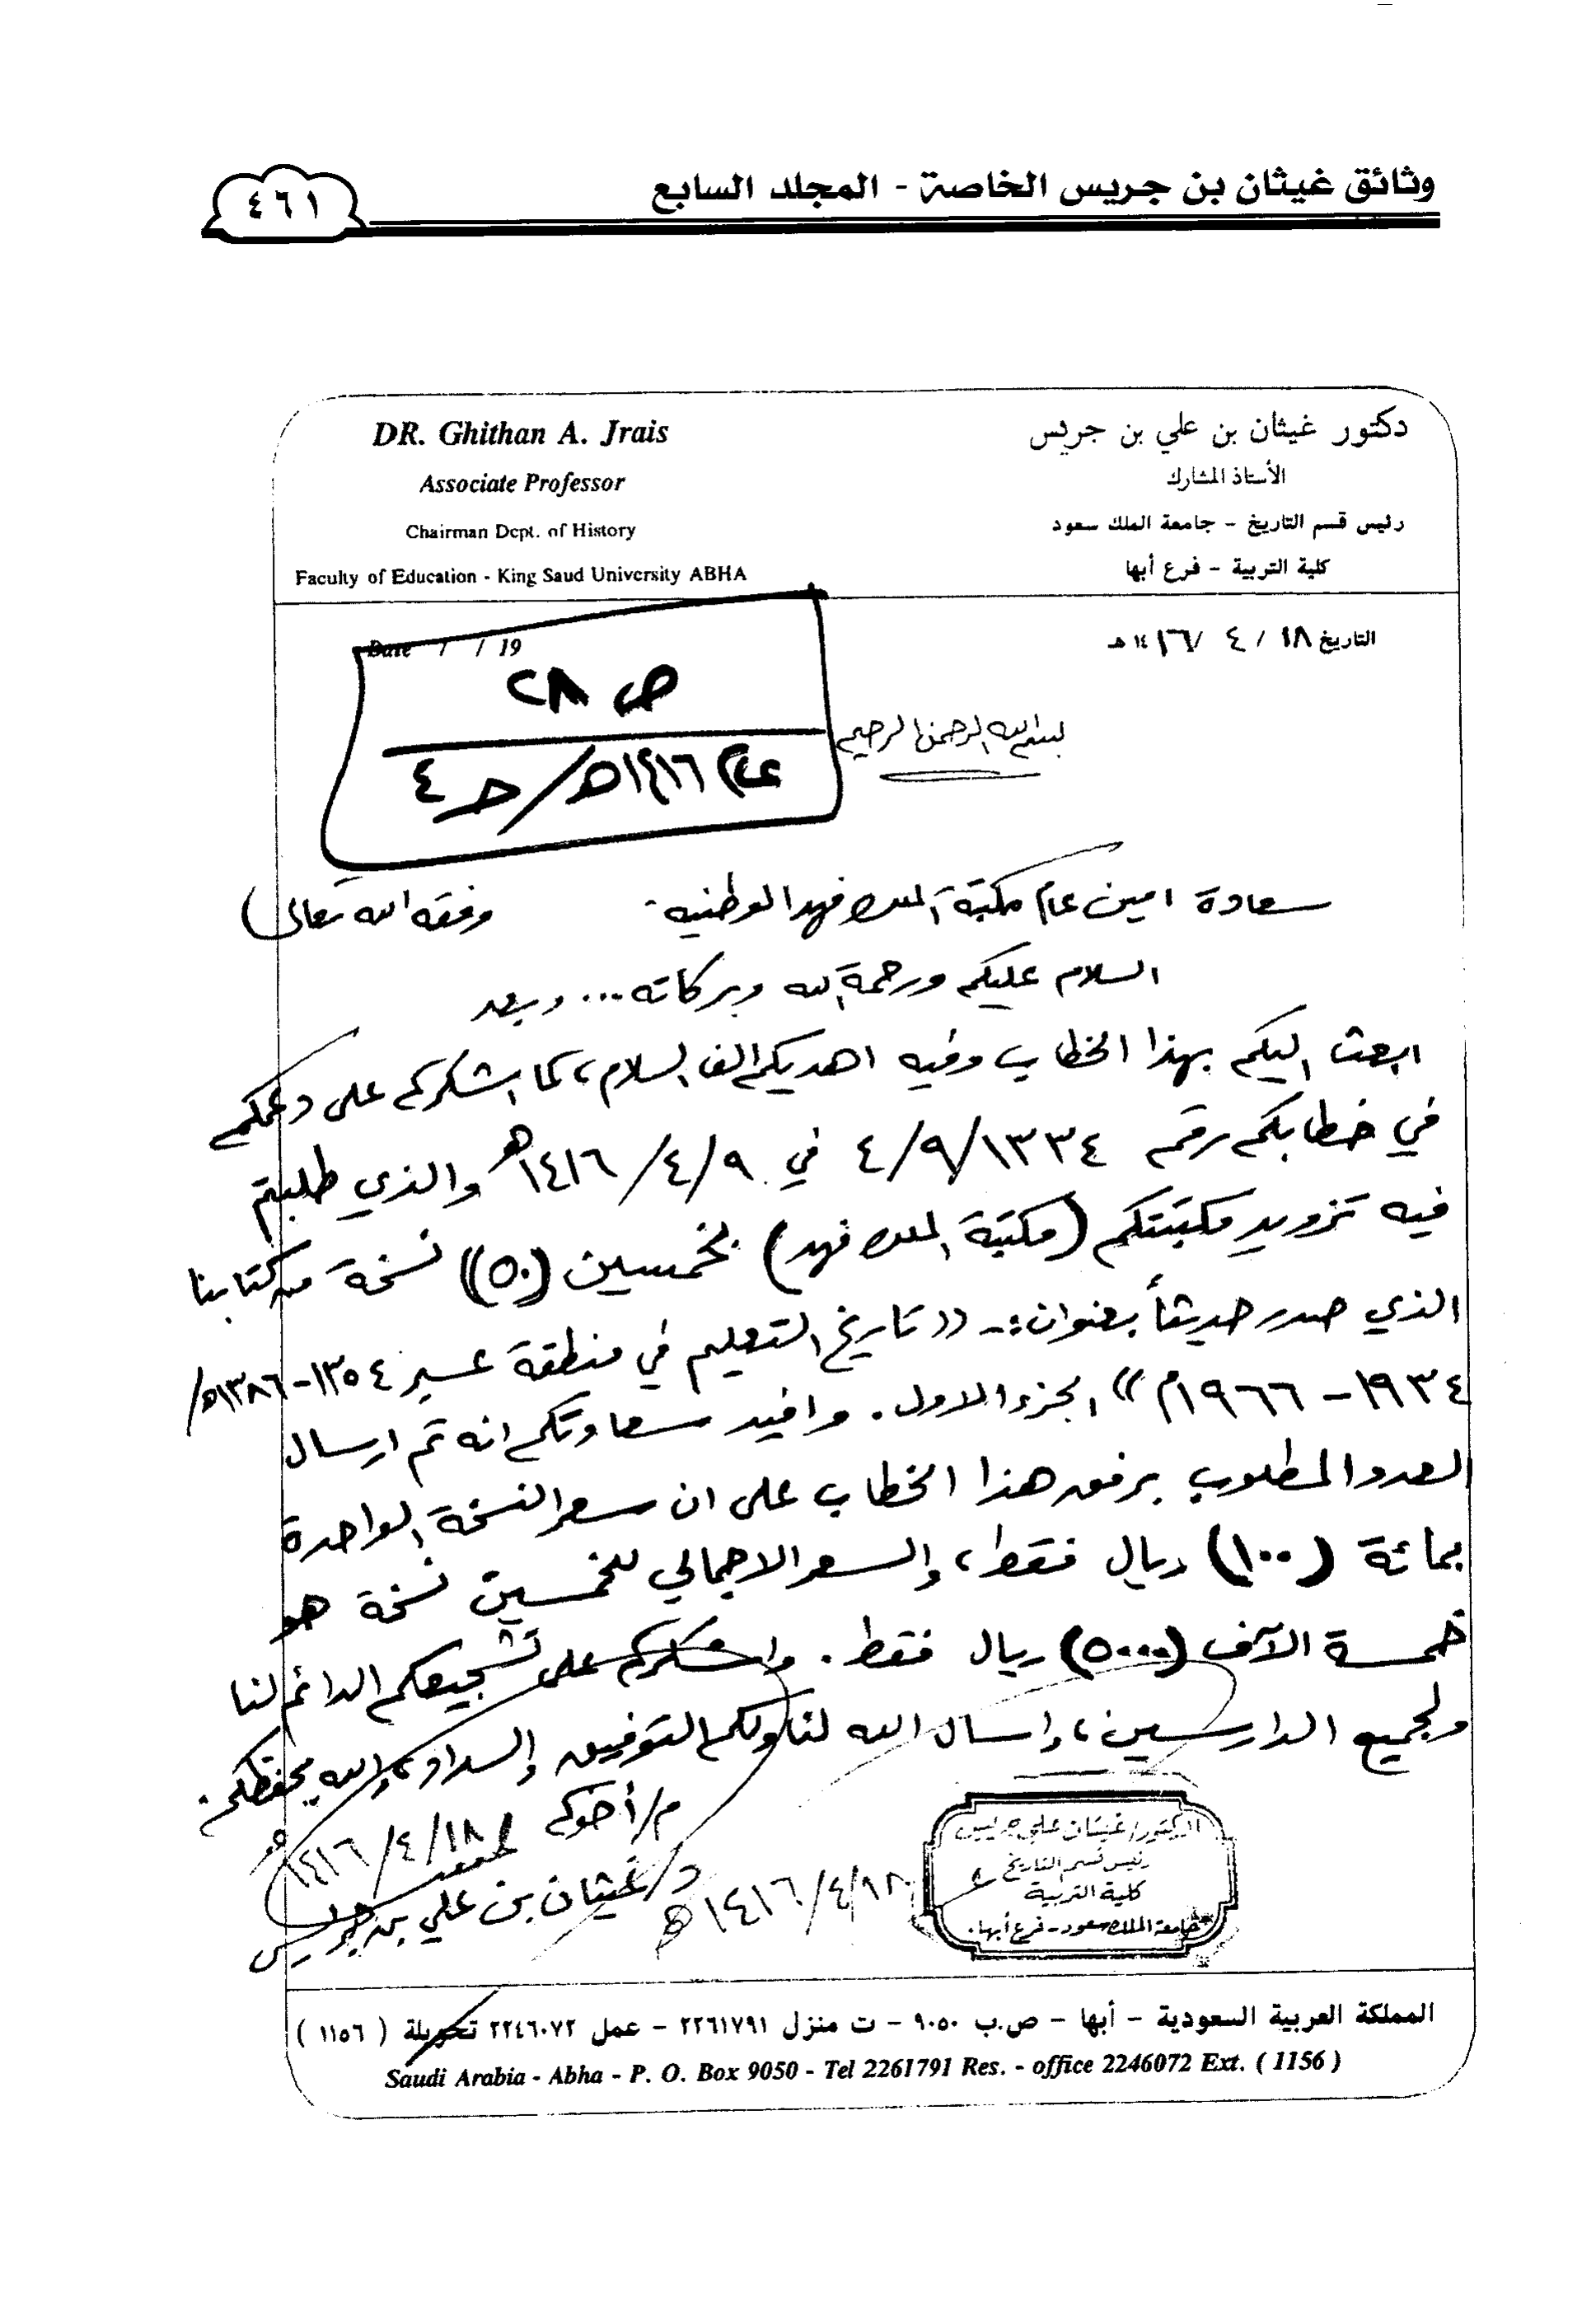 وثائق غيثان بن جريس الخاصة - المجلد السابع
٤٦١
دكتور غيثان بن علي بن جريس
الأستاذ المشارك
رئيس قسم التاريخ - جامعة الملك سعود
كلية التربية - فرع أبها
DR. Ghithan A. Jrais
Associate Professor
Chairman Dept. of History
Faculty of Education - King Saud University ABHA
التاريخ ١٨ / ٤ / ١٤١٦ هـ
Date / / 19
ص ٢٨
عام ١٤١٦هـ/ حـ ٤
بسم الله الرحمن الرحيم
سعادة امين عام مكتبة الملك فهد الوطنيه وفقه الله تعالى
السلام عليكم ورحمة الله وبركاته ... وبعد
ابعث اليكم بهذا الخطاب وفيه اهديكم الف السلام، كما اشكركم على دعمكم
في خطابكم رقم ٤/٩/١٣٣٤ في ٤/٩/ ١٤١٦هـ والذي طلبتم
فيه تزويد مكتبتكم (مكتبة الملك فهد) بخمسين (٥٠)) نسخة من كتابنا
الذي صدر حديثاً بعنوان:- (( تاريخ التعليم في منطقة عسير ١٣٥٤-١٣٨٦هـ/
١٩٣٤ - ١٩٦٦م )) الجزء الاول. وافيد سعادتكم انه تم ارسال
العدد المطلوب برفق هذا الخطاب على ان سعر النسخة الواحدة
بمائة (١٠٠) ريال فقط، والسعر الاجمالي للخمسين نسخة هو
خمسة الآف (٥٠٠٠) ريال فقط. واشكركم على تشجيعكم الدائم لنا
ولجميع الدارسين، واسال الله لنا ولكم التوفيق والسداد، والله يحفظكم.
م/أخوكم
١٨/٤/١٤١٦هـ
د/غيثان بن علي بن جريس
١٨/٤/١٤١٦هـ
الدكتور/ غيثان علي جريس
رئيس قسم التاريخ
كلية التربية
جامعة الملك سعود - فرع أبها.
المملكة العربية السعودية - أبها - ص.ب ٩٠٥٠ - ت منزل ٢٢٦١٧٩١ - عمل ٢٢٤٦٠٧٢ تحويلة ( ١١٥٦ )
Saudi Arabia - Abha - P. O. Box 9050 - Tel 2261791 Res. - office 2246072 Ext. ( 1156 )